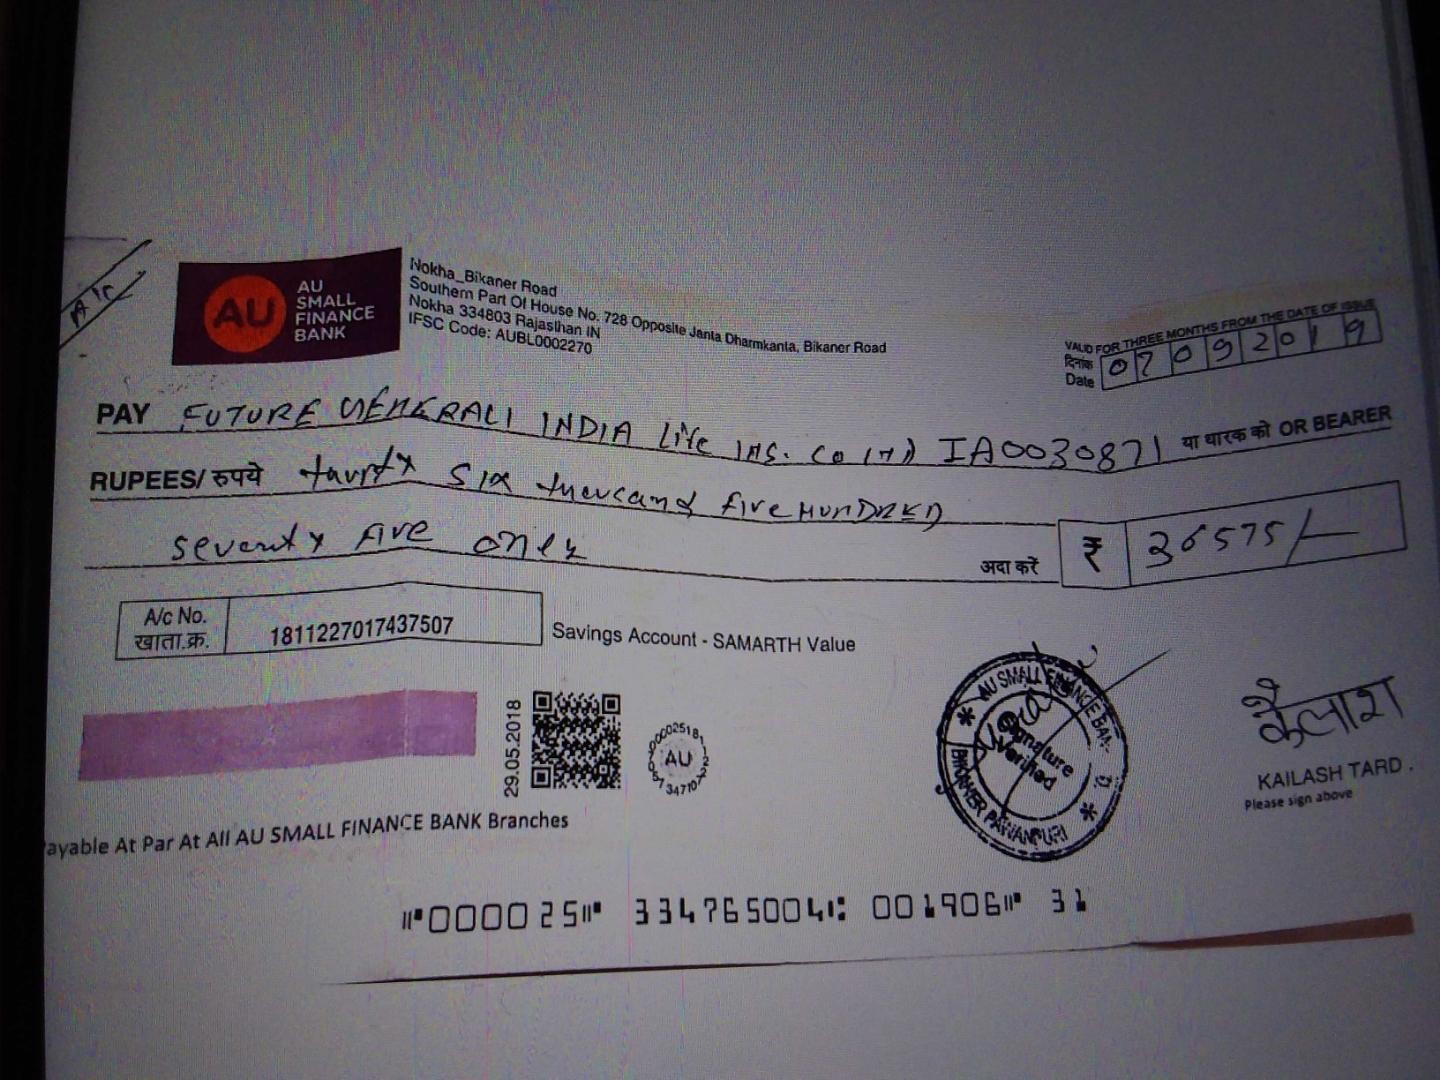 A/c
AU
AU
SMALL
FINANCE
BANK
Nokha_Bikaner Road
Southern Part Of House No. 728 Opposite Janta Dharmkanta, Bikaner Road
Nokha 334803 Rajasthan IN
IFSC Code: AUBL0002270
VALID FOR THREE MONTHS FROM THE DATE OF ISSUE
दिनांक
Date 07092019
PAY FUTURE GENERALI INDIA Life INS. Co LTD IA0030871 या धारक को OR BEARER
RUPEES/ रुपये six thousand five HUNDRED
seventy five only अदा करें ₹ 36575/-
A/c No.
खाता.क्र. 1811227017437507 Savings Account - SAMARTH Value
29.05.2018
AU
AU SMALL FINANCE BANK
Signature
Verified
BIKANER PAWANPURI
कैलाश
KAILASH TARD .
Please sign above
ayable At Par At All AU SMALL FINANCE BANK Branches
⑈000025⑈ 334765004⑆ 001906⑈ 31